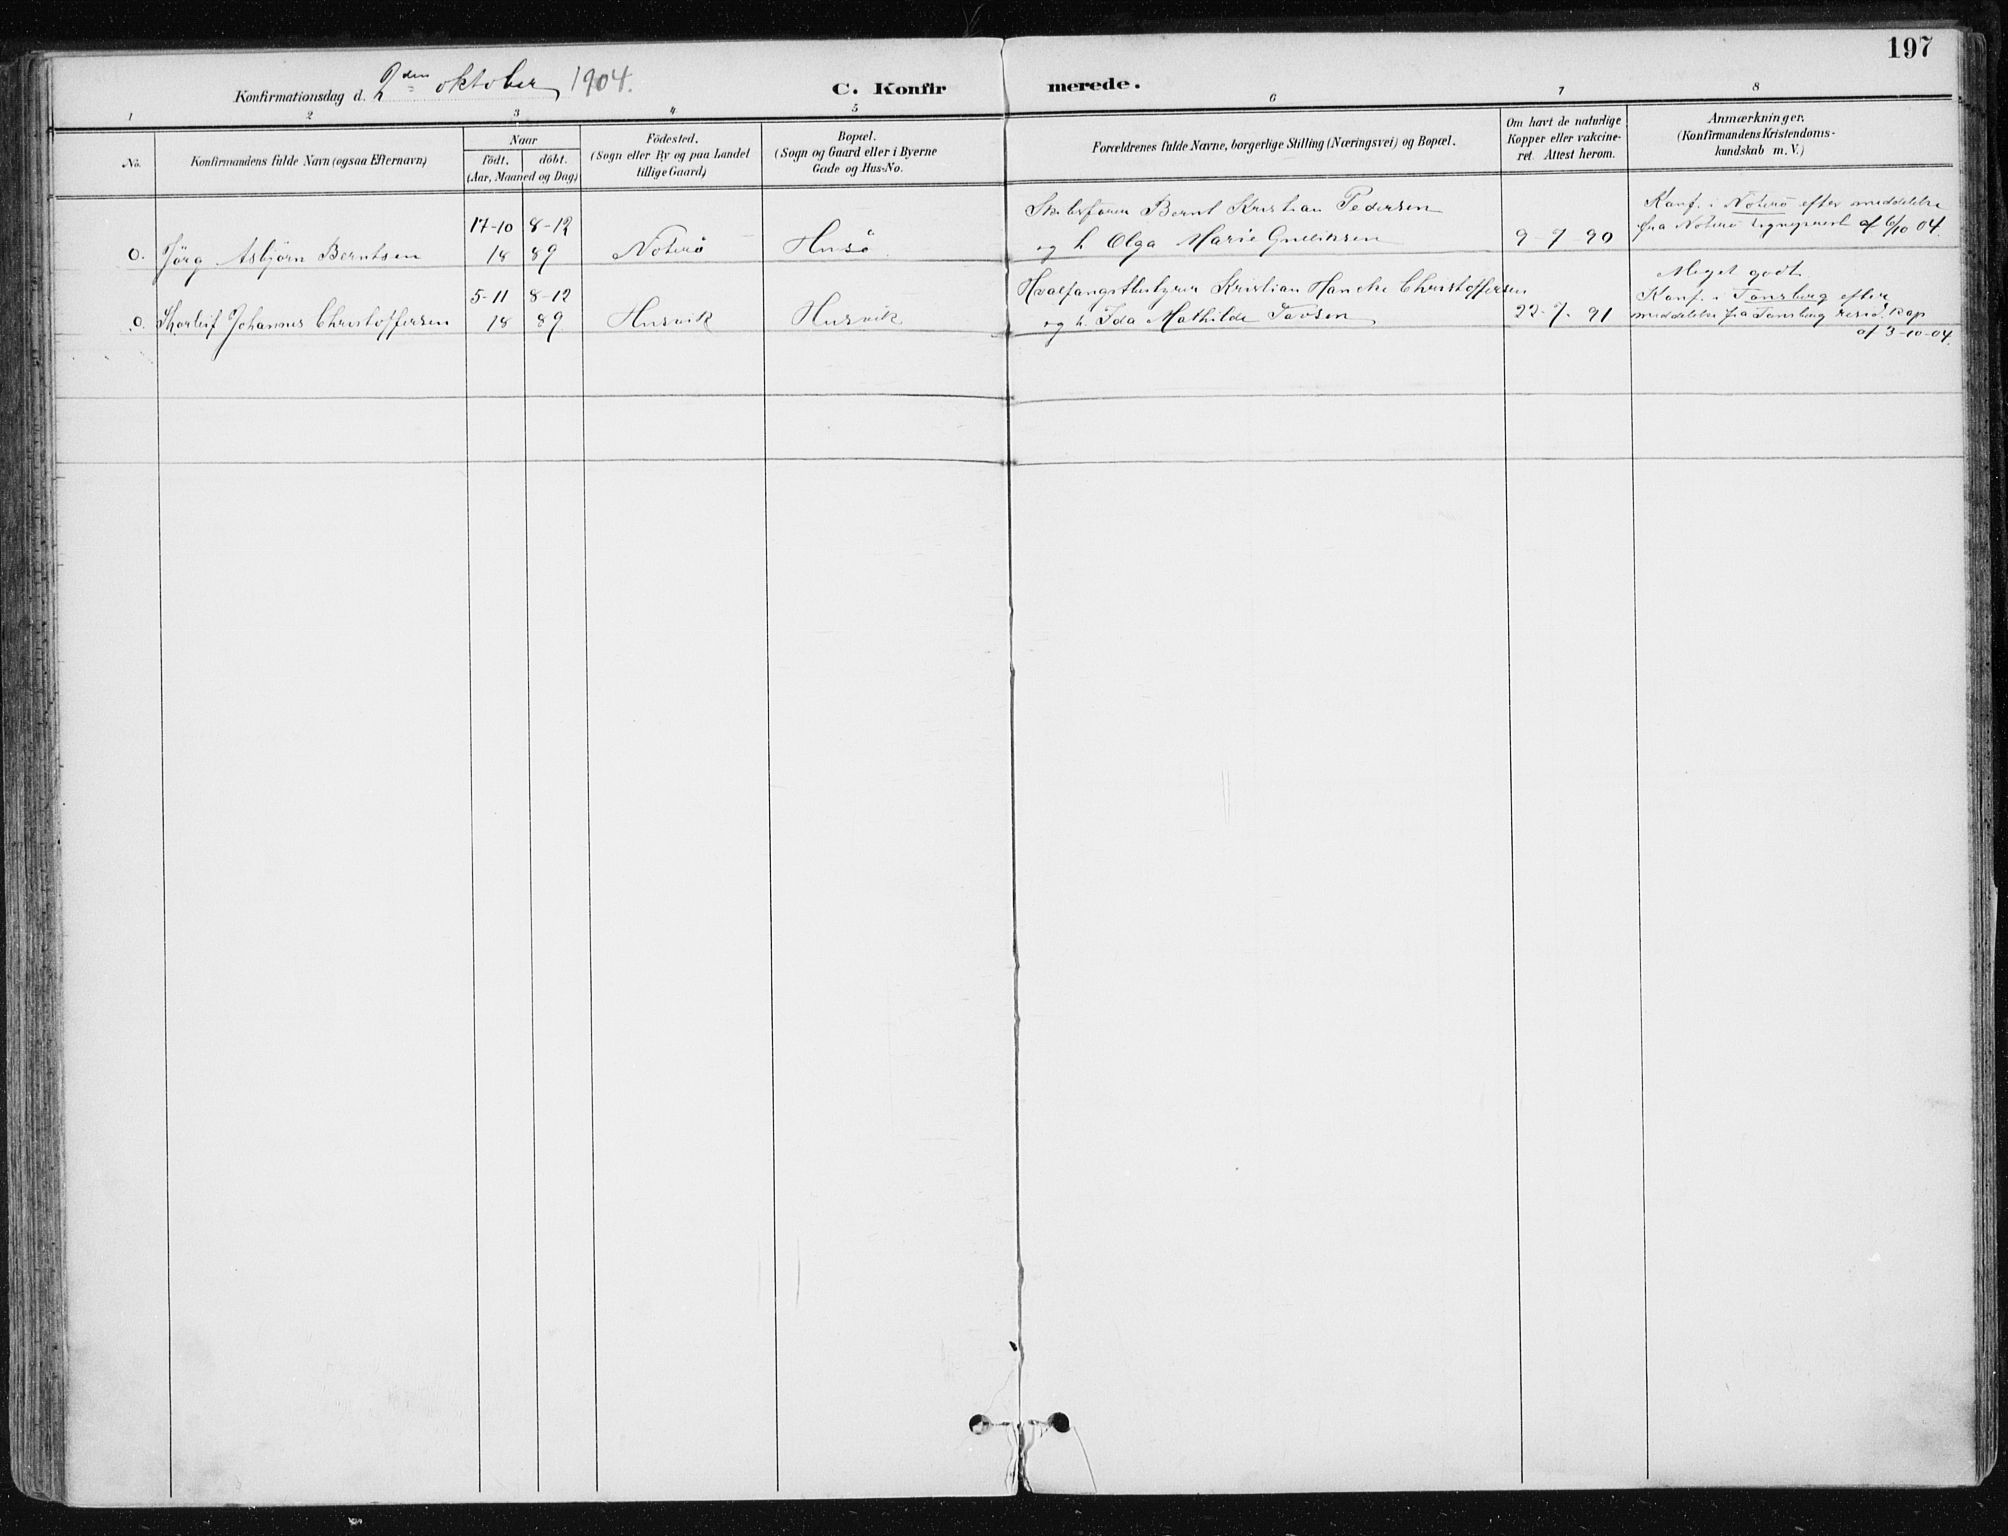 197
Konfirmationsdag d. 2den oktober 1904.
C. Konfirmerede.
1 2 3 4 5 6 7 8
No.
Konfirmandens fulde Navn (ogsaa Efternavn)
Naar
födt. döbt.
(Aar, Maaned og Dag)
Födested.
(Sogn eller By og paa Landet
tillige Gaard)
Bopæl.
(Sogn og Gaard eller i Byerne
Gade og Hus-No.
Forældrenes fulde Navne, borgerlige Stilling (Næringsvei) og Bopæl.
Om havt de naturlige
Kopper eller vakcine-
ret. Attest herom.
Anmærkninger.
(Konfirmandens Kristendoms-
kundskab m. V.)
17-10 8-12 Skibsfører Bernt Kristian Pedersen Konf. i Nøterø efter meddelelse
o. Jörg Asbjørn Berntsen 18 89 Nøterø Husø og h. Olga Marie Gulliksen 9-7-90 fra Nøterø sogneprest af 6/10 04.
Meget godt.
5-11 8-12 Hvalfangstbestyrer Kristian Hancke Christoffersen Konf. i Tønsberg efter
o. Thorleif Johannes Christoffersen 18 89 Husvik Husvik og h. Ida Mathilde 22-7-91 meddelelse fra Tønsberg resid. kap
af 3-10-04.